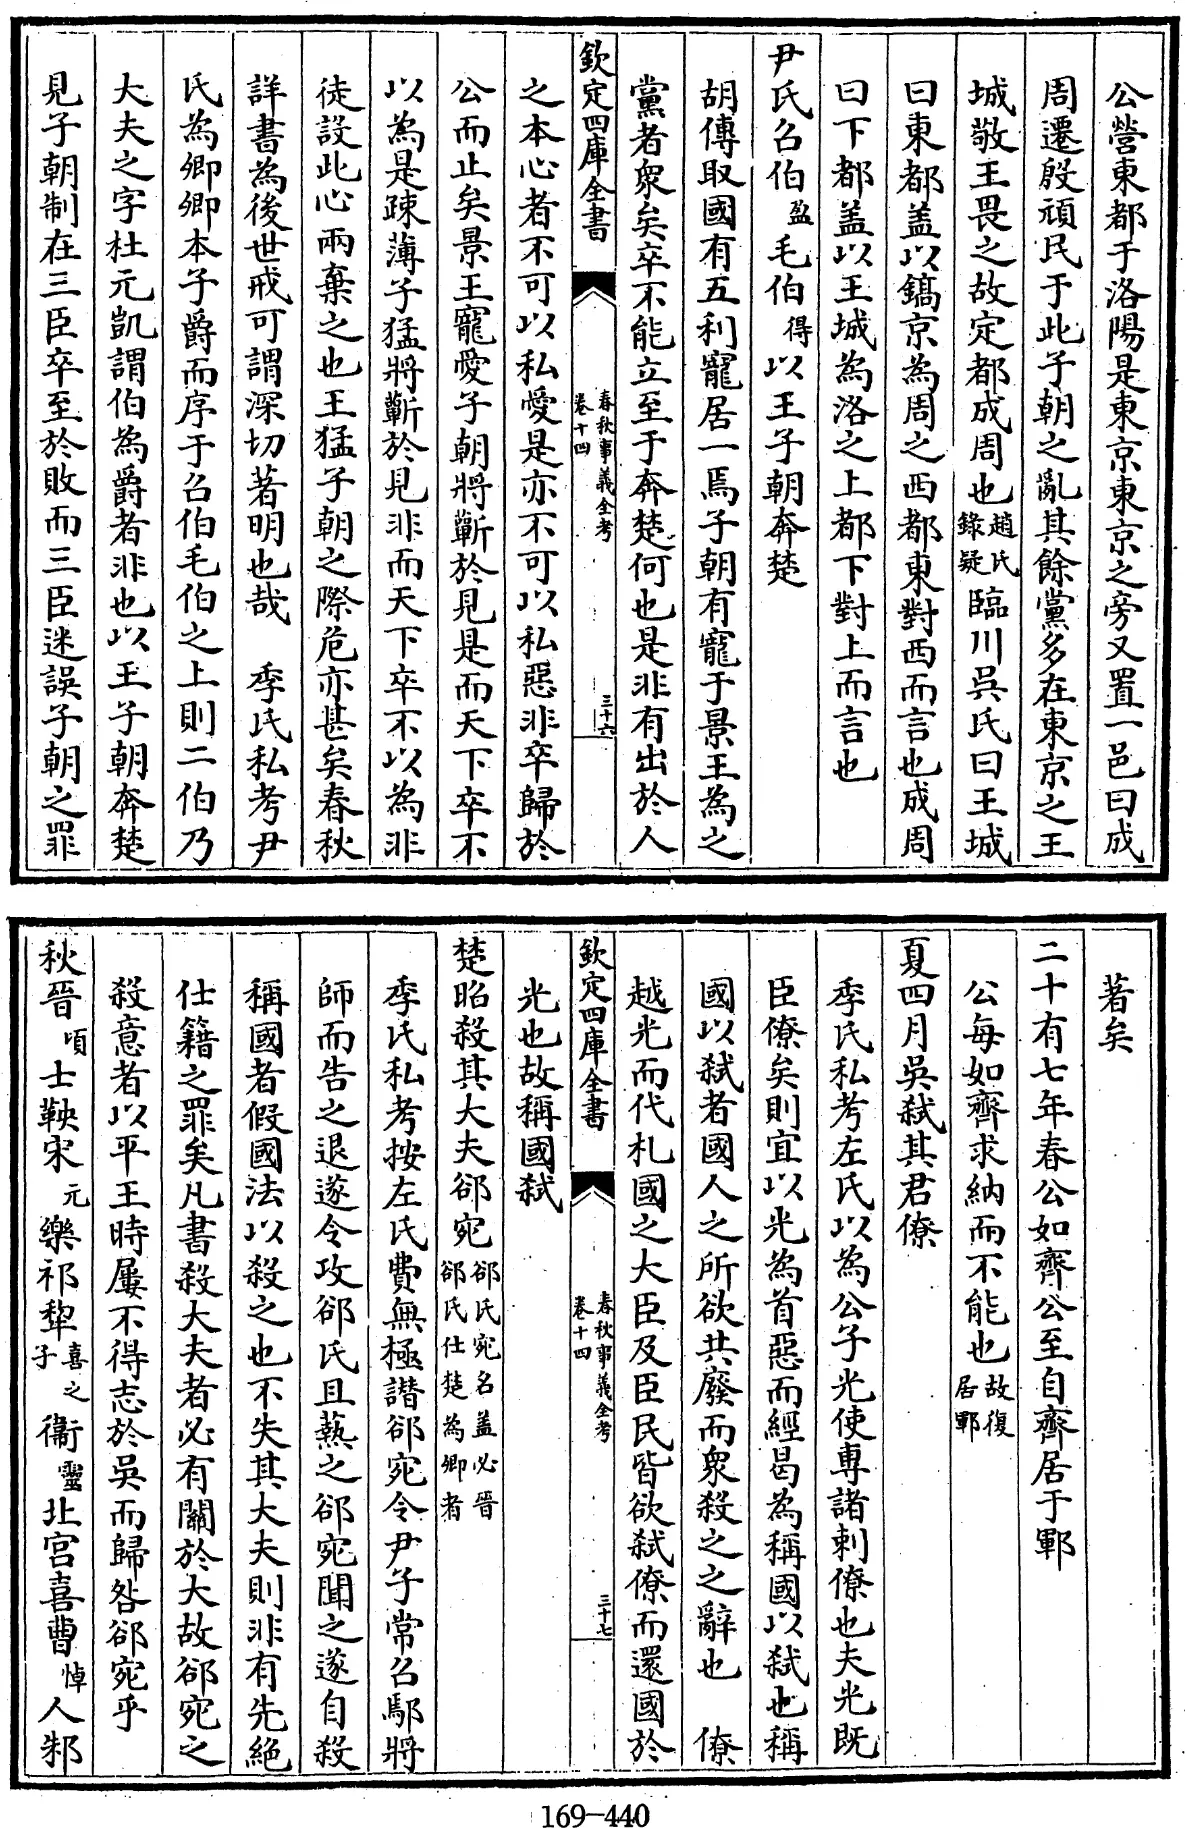 公營東都于洛陽是東京東京之旁又置一邑曰成
周遷殷頑民于此子朝之亂其餘黨多在東京之王
城敬王畏之故定都成周也趙氏錄疑臨川吳氏曰王城
曰東都盖以鎬京為周之西都東對西而言也成周
曰下都盖以王城為洛之上都下對上而言也
尹氏召伯盈毛伯得以王子朝奔楚
胡傳取國有五利寵居一焉子朝有寵于景王為之
黨者衆矣卒不能立至于奔楚何也是非有出於人
欽定四庫全書
春秋事義全考
卷十四
三十六
之本心者不可以私愛是亦不可以私惡非卒歸於
公而止矣景王寵愛子朝將蘄於見是而天下卒不
以為是疎薄子猛將蘄於見非而天下卒不以為非
徒設此心兩棄之也王猛子朝之際危亦甚矣春秋
詳書為後世戒可謂深切著明也哉 季氏私考尹
氏為卿卿本子爵而序于召伯毛伯之上則二伯乃
大夫之字杜元凱謂伯為爵者非也以王子朝奔楚
見子朝制在三臣卒至於敗而三臣迷誤子朝之罪
著矣
二十有七年春公如齊公至自齊居于鄆
公每如齊求納而不能也故復居鄆
夏四月吳弑其君僚
季氏私考左氏以為公子光使專諸刺僚也夫光既
臣僚矣則宜以光為首惡而經曷為稱國以弑也稱
國以弑者國人之所欲共廢而衆殺之之辭也 僚
越光而代札國之大臣及臣民皆欲弑僚而還國於
欽定四庫全書
春秋事義全考
卷十四
三十七
光也故稱國弑
楚昭殺其大夫郤宛郤氏宛名盖必晉郤氏仕楚為卿者
季氏私考按左氏費無極譖郤宛令尹子常召鄢將
師而告之退遂令攻郤氏且爇之郤宛聞之遂自殺
稱國者假國法以殺之也不失其大夫則非有先絕
仕籍之罪矣凡書殺大夫者必有關於大故郤宛之
殺意者以平王時屢不得志於吳而歸咎郤宛乎
秋晉頃士鞅宋元樂祁犂喜之子衞靈北宮喜曹悼人邾
169-440